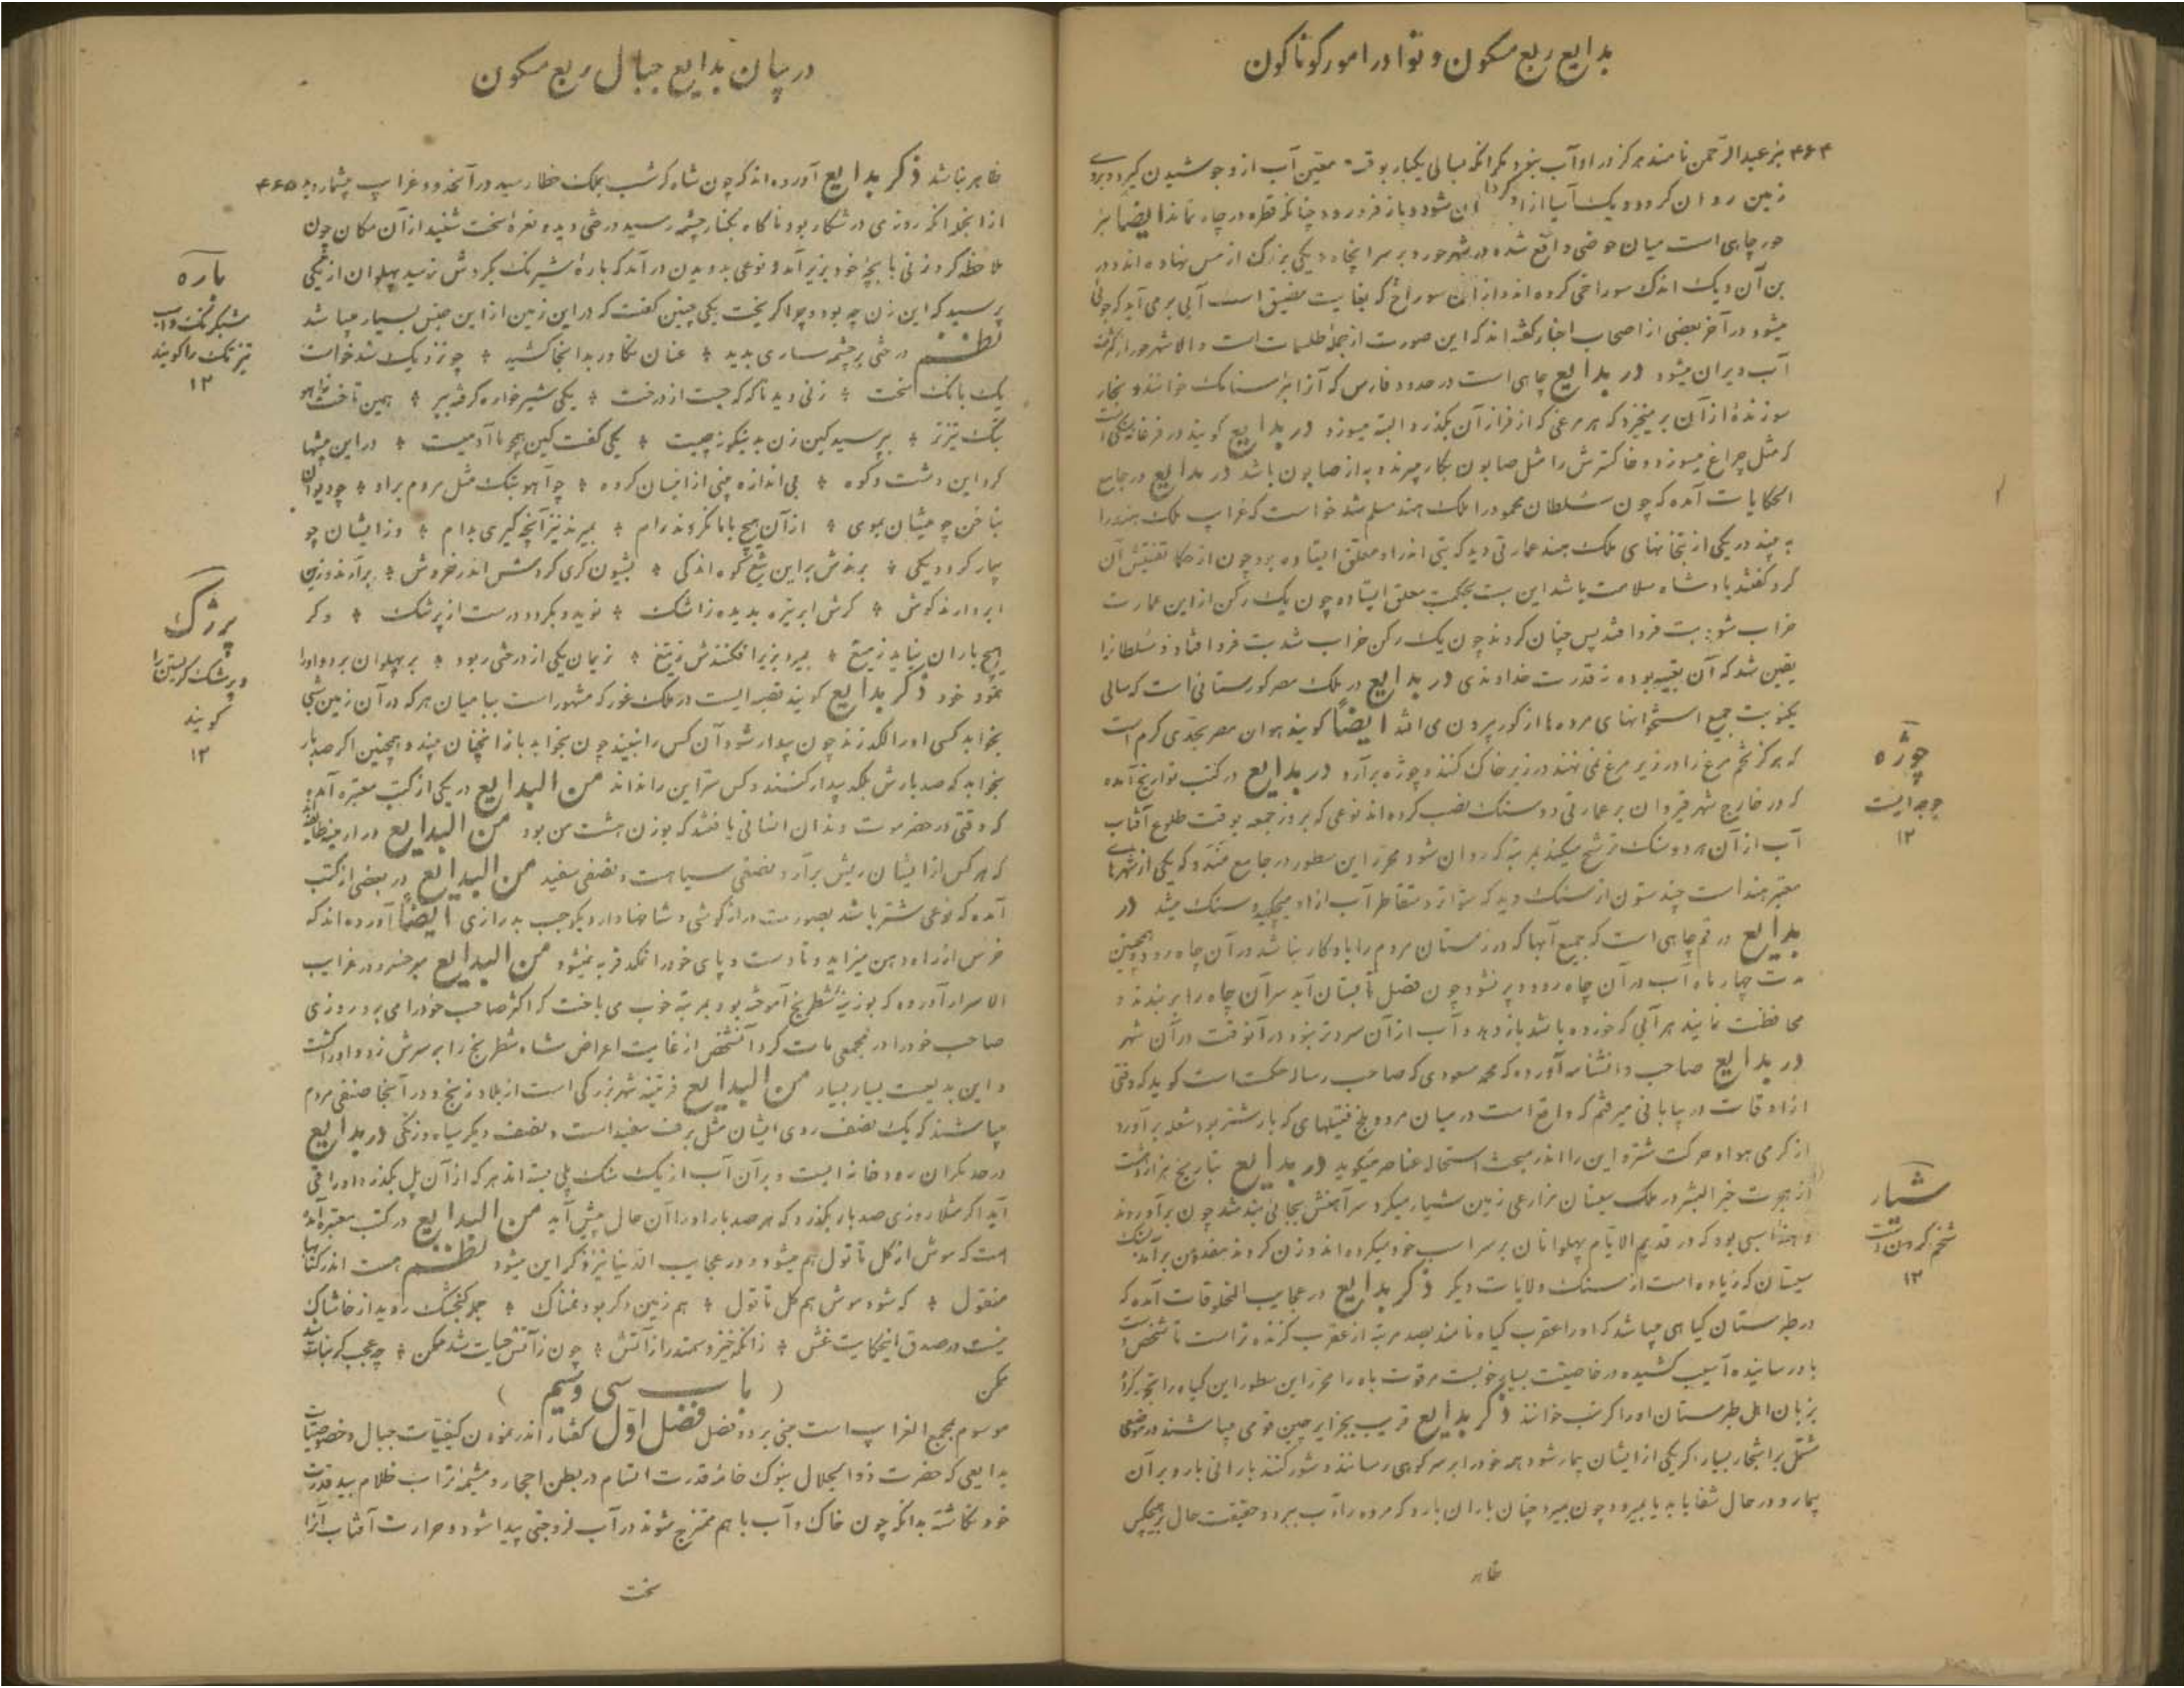 بدایع ربع مسکون و نوادر امور گوناگون
۴۶۴ بئر عبدالرحمن نامند هرگز در او آب نبود مگر آنکه بسالی یکبار بوقت معین آب از او جوشیدن گیرد و بروی
زمین روان گردد و یک آسیا از او گردان شود و باز فرو رود چنانکه قطره در چاه نماند ایضا بئر
حور چاهی است میان حوضی واقع شده در شهر حور و بر سر آنجا دیگی بزرگ از مس نهاده‌اند و در
بن آن دیگ اندک سوراخی کرده‌اند و از آن سوراخ که بغایت مضیق است آبی برمی‌آید که جوئی
میشود و در آخر بعضی از اصحاب اخبار گفته‌اند که این صورت از جمله طلسمات است و الا شهر حور از کثرت
آب ویران میشود در بدایع چاهی است در حدود فارس که آنرا بئر خوانند و بخار
سوزنده از آن برمیخیزد که هر مرغی که از فراز آن بگذرد البته میسوزد در بدایع گویند در فرغانه سنگی است
که مثل چراغ میسوزد و خاکسترش را مثل صابون بکار میبرند و به از صابون باشد در بدایع در جامع
الحکایات آمده که چون سلطان محمود را ملک هند مسلم شد خواست که غرایب ملک هند را
به بیند در یکی از بتخانهای ملک هند عمارتی دید که بتی اندر او معلق ایستاده بود چون از حکما تفتیش آن
کرد گفتند پادشاه سلامت باشد این بت بحکمت معلق ایستاده چون یک رکن از این عمارت
خراب شود بت فرو افتد پس چنان کردند چون یک رکن خراب شد بت فرو افتاد و سلطانرا
یقین شد که آن تعبیه بوده نه قدرت خداوندی در بدایع در ملک مصر گورستانی است که سالی
یکنوبت جمیع استخوانهای مرده‌ها از گور بیرون می‌افتد ایضاً گویند هوای مصر بحدی گرم است
که هرگز تخم مرغ را در زیر مرغ نمی‌نهند در زیر خاک کنند و چوژه برآرد در بدایع در کتب تواریخ آمده
که در خارج شهر قیروان بر عمارتی دو سنگ نصب کرده‌اند نوعی که بروز جمعه بوقت طلوع آفتاب
آب از آن هر دو سنگ ترشح میکند بمرتبه که روان شود محرر این سطور در جامع که یکی از شهرهای
معتبر هند است چند ستون از سنگ دید که متواتر و متقاطر آب از او میچکید و سنگ میشد در
بدایع در قم چاهی است که جمیع آبها که در زمستان مردم را با او کار نباشد در آن چاه رود و همچنین
مدت چهار ماه آب در آن چاه رود و پر نشود چون فصل تابستان آید سر آن چاه را بر بندند و
محافظت نمایند هر آبی که خورده باشد باز دهد و آب از آن سردتر نبود در آنوقت در آن شهر
در بدایع صاحب دانشنامه آورده که محمد مسعودی که صاحب رساله حکمت است گوید که وقتی
از اوقات در بیابانی میرفتم که واقع است در میان مرو و بلخ فتیلهای که بار شتر بود شعله برآورد
از گرمی هوا و حرکت شتر و این را اندر مبحث استحاله عناصر میگوید در بدایع بتاریخ هزار و هشت
از هجرت خیر البشر در ملک سیستان مزارعی زمین شیار میکرد سر آهنش بجائی بند شد چون برآوردند
اسبی بود که در قدیم الایام پهلوانان بر سر اسب خود میکرده‌اند وزن کردند هفده من برآمد بسنگ
سیستان که زیاده است از سنگ ولایات دیگر ذکر بدایع در عجایب المخلوقات آمده که
در طبرستان گیاهی میباشد که او را عقرب گیاه نامند بصد مرتبه از عقرب گزنده‌تر است تا شخص دست
باو رسانیده آسیب کشیده و در خاصیت بسیار خوبست مر قوت باه را محرر این سطور این گیاه را تجربه کرد
بزبان اهل طبرستان او را خوانند ذکر بدایع قریب بجزایر چین قومی میباشند در موضعی
مشتمل بر اشجار بسیار اگر یکی از ایشان بیمار شود همه خود را بر سر کوهی رسانند و شور کنند بارانی بارد بر آن
بیمار و در حال شفا یابد یا بمیرد و چون بمیرد چنان باران بارد که مرده را آب ببرد و حقیقت حال بر هیچکس
ظاهر
چوژه
جوجه است
۱۲
شیار
شخم کردنست
۱۲
در بیان بدایع جبال ربع مسکون
ظاهر نباشد ذکر بدایع آورده‌اند که چون شاه گرشسب بملک خطا رسید در آنحدود غرایب بیشمار دید ۴۶۵
از آنجمله آنکه روزی در شکار بود ناگاه بکنار چشمه رسید درختی دید و نعره سخت شنید از آن مکان چون
ملاحظه کرد زنی با بچهٔ خود بزیر آمد و نوعی بدویدن درآمد که باره شبرنگ بگردش نرسید پهلوان از یکی
پرسید که این زن چه بود و چرا گریخت یکی چنین گفت که در این زمین از این جنس بسیار میباشد
نظم درختی بر چشمه ساری بدید * عنان تکاور بدانجا کشید * چو نزدیک شد خواست
یک بانگ سخت * زنی دید ناگه که جست از درخت * یکی شیرخواره گرفته ببر * همی تاخت ز آهو
بتگ تیزتر * بپرسید کین زن بدینگونه چیست * یکی گفت کین بچه ما آدمیست * در این بیشها
گرد این دشت و کوه * بی‌اندازه بینی از اینسان گروه * چو آهو بتگ مثل مردم براه * چو دیوان
بناخن چو میشان بموی * از آن هیچ با ما نگردند رام * بمیرند نیز آنچه گیری بدام * وز ایشان چو
بیمار گردد یکی * برندش براین تیغ کوه اندکی * بشیون گری گردش اندر خروش * برآرند وزین
ابر دارند گوش * گرش ابر بیزد بدیده ز اشک * نوید و بگردد درست از پرشک * وگر
هیچ باران نیاید ز میغ * بمیرد بزیر افکنندش ز تیغ * زنیان یکی از درختی ربود * بر پهلوان برد و او را
نمود خود ذکر بدایع گویند قصبه ایست در ملک غور که مشهور است ببامیان هر که در آن زمین شبی
بخوابد کسی او را لگد زند چون بیدار شود آن کس را نبیند چون بخوابد باز آنچنان بیند و همچنین اگر صد بار
بخوابد که صد بارش بلگد بیدار کنند و کس سر این را نداند من البدایع در یکی از کتب معتبره آمده
که وقتی در حضرموت دندان انسانی یافتند که بوزن هشت من بود من البدایع در ارمنیه طایفه‌اند
که هر کس از ایشان ریش برآرد نصفی سیاهست و نصفی سفید من البدایع در بعضی از کتب
آمده که نوعی شتر باشد بصورت دراز گوشی و شاخها دارد یکوجب بدرازی ایضاً آورده‌اند که
خرس از راه دهن میزاید و تا دست و پای خود را نمکد فربه نمیشود من البدایع میر خسرو در غرایب
الاسرار آورده که بوزینهٔ شطرنج آموخته بود بمرتبه خوب می‌باخت که اکثر صاحب خود را می‌برد روزی
صاحب خود را در مجمعی مات کرد آنشخص از غایت اعراض شاه شطرنج را بر سرش زد و او را کشت
و این بدیعست بسیار بسیار من البدایع شهر بزرگی است از بلاد زنج و در آنجا صنفی مردم
میباشند که یک نصف روی ایشان مثل برف سفید است و نصف دیگر سیاه و زنگی در بدایع
در حد مکران رودخانه ایست و بر آن آب از یک سنگ پلی بسته‌اند هر که از آن پل بگذرد او را قی
آید اگر مثلا روزی صد بار بگذرد که هر صد بار او را آن حال پیش آید من البدایع در کتب معتبره آمده
است که موش از گل تا تول هم میشود و در عجایب الدنیا نیز ذکر این میشود نظم هست اندر کتابها
منقول * که شود موش هم گل تا تول * هم زمین دگر بود نمناک * جمله گنجشک روید از خاشاک
نیست در صدق اینحکایت غش * زانکه خیزد سمندر از آتش * چون ز آتش حیات شد ممکن * چه عجب گر نبات شد
ممکن
( باب سی و سیم )
موسوم بمجمع الغرایب است مبنی بر دو فصل فصل اول گفتار اندر نمودن کیفیات جبال و خصوصیات
بدایعی که حضرت ذوالجلال بنوک خامه قدرت التیام در بطن احجار و مشیمه تراب ظلام بید قدرت
خود نگاشته بدانکه چون خاک و آب با هم ممتزج شوند در آب لزوجتی پیدا شود و حرارت آفتاب آنرا
سخت
باره
شبرنگ و اسب
تیزتک را گویند
۱۲
پرژک
و پرشک گریستن را
گویند
۱۲